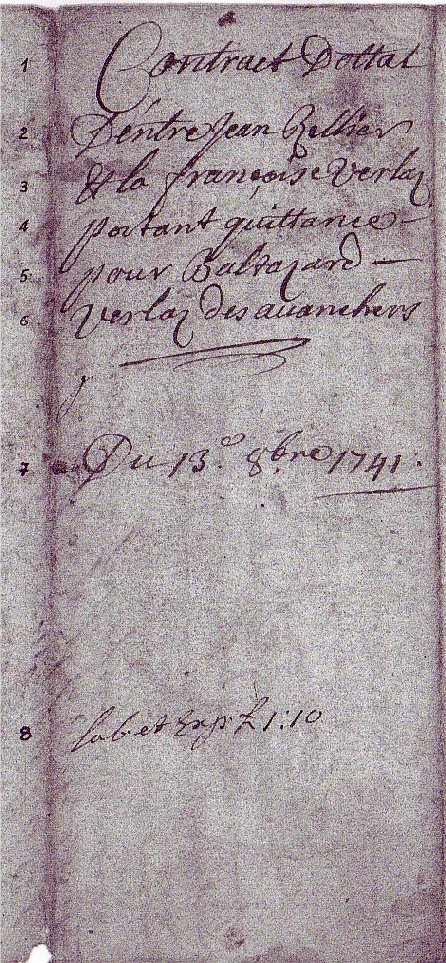 1 Contract Dottal
2 D'entre Jean Rellier
3 & la françoise Verlaz
4 portant quittance
5 pour Baltazard
6 Verlaz des auanchers
7 Du 13.e 8bre 1741.
8 lab et Exp.n £ 1:10